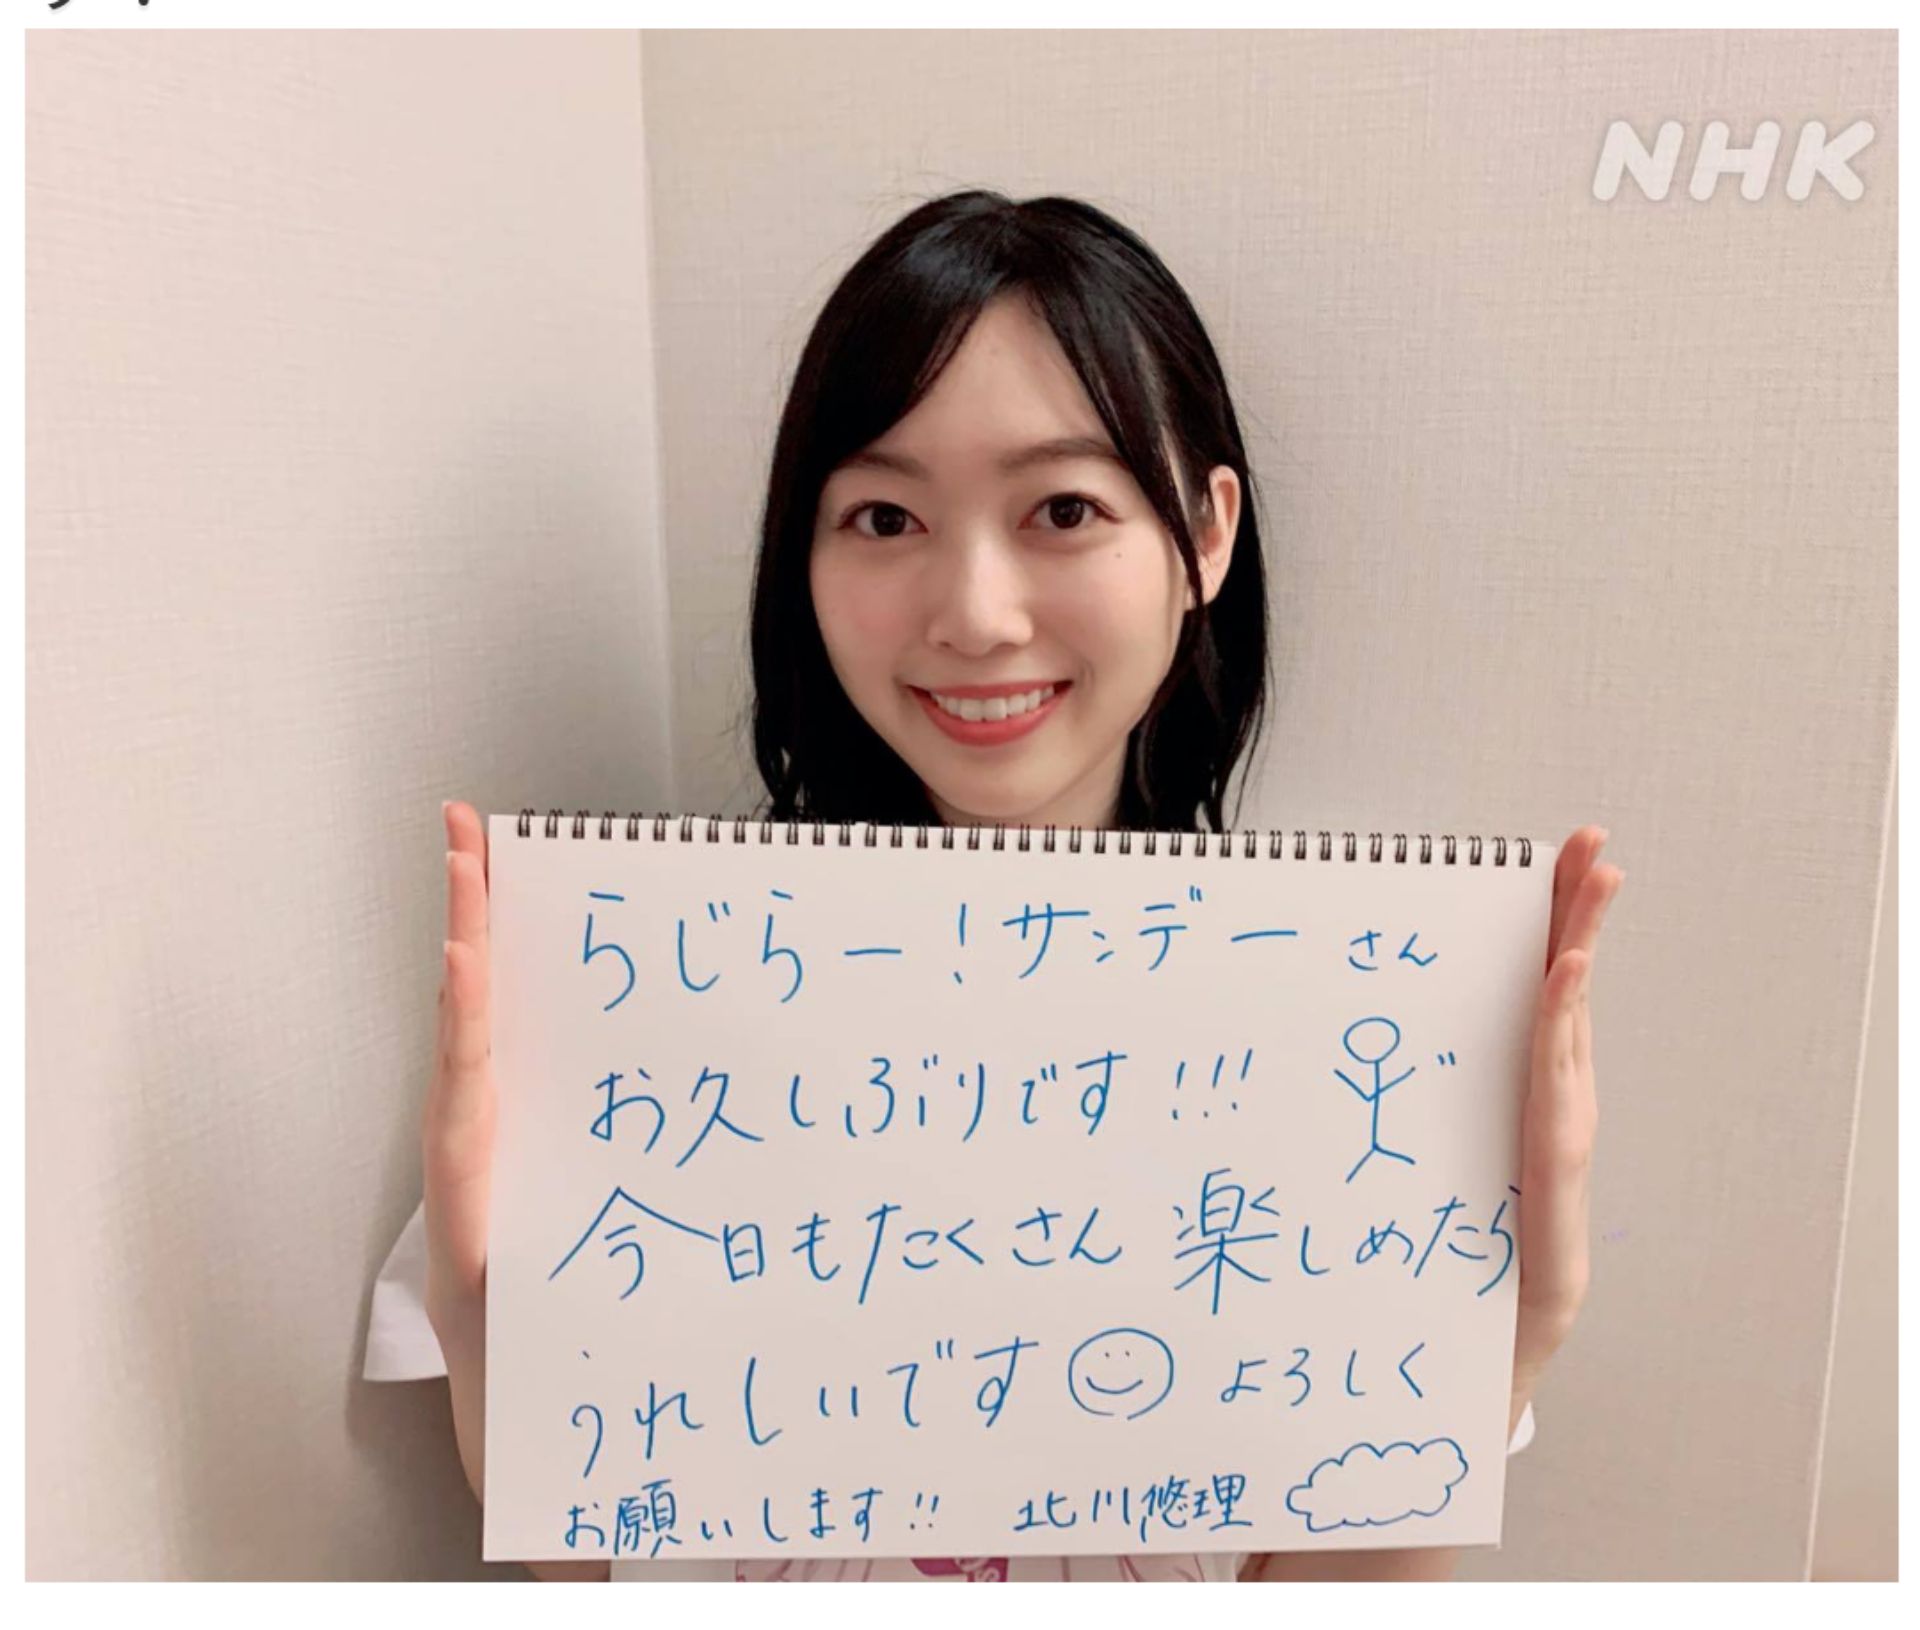 NHK
らじらー！サンデーさん
お久しぶりです!!!
今日もたくさん楽しめたら
うれしいです よろしく
お願いします!! 北川悠理